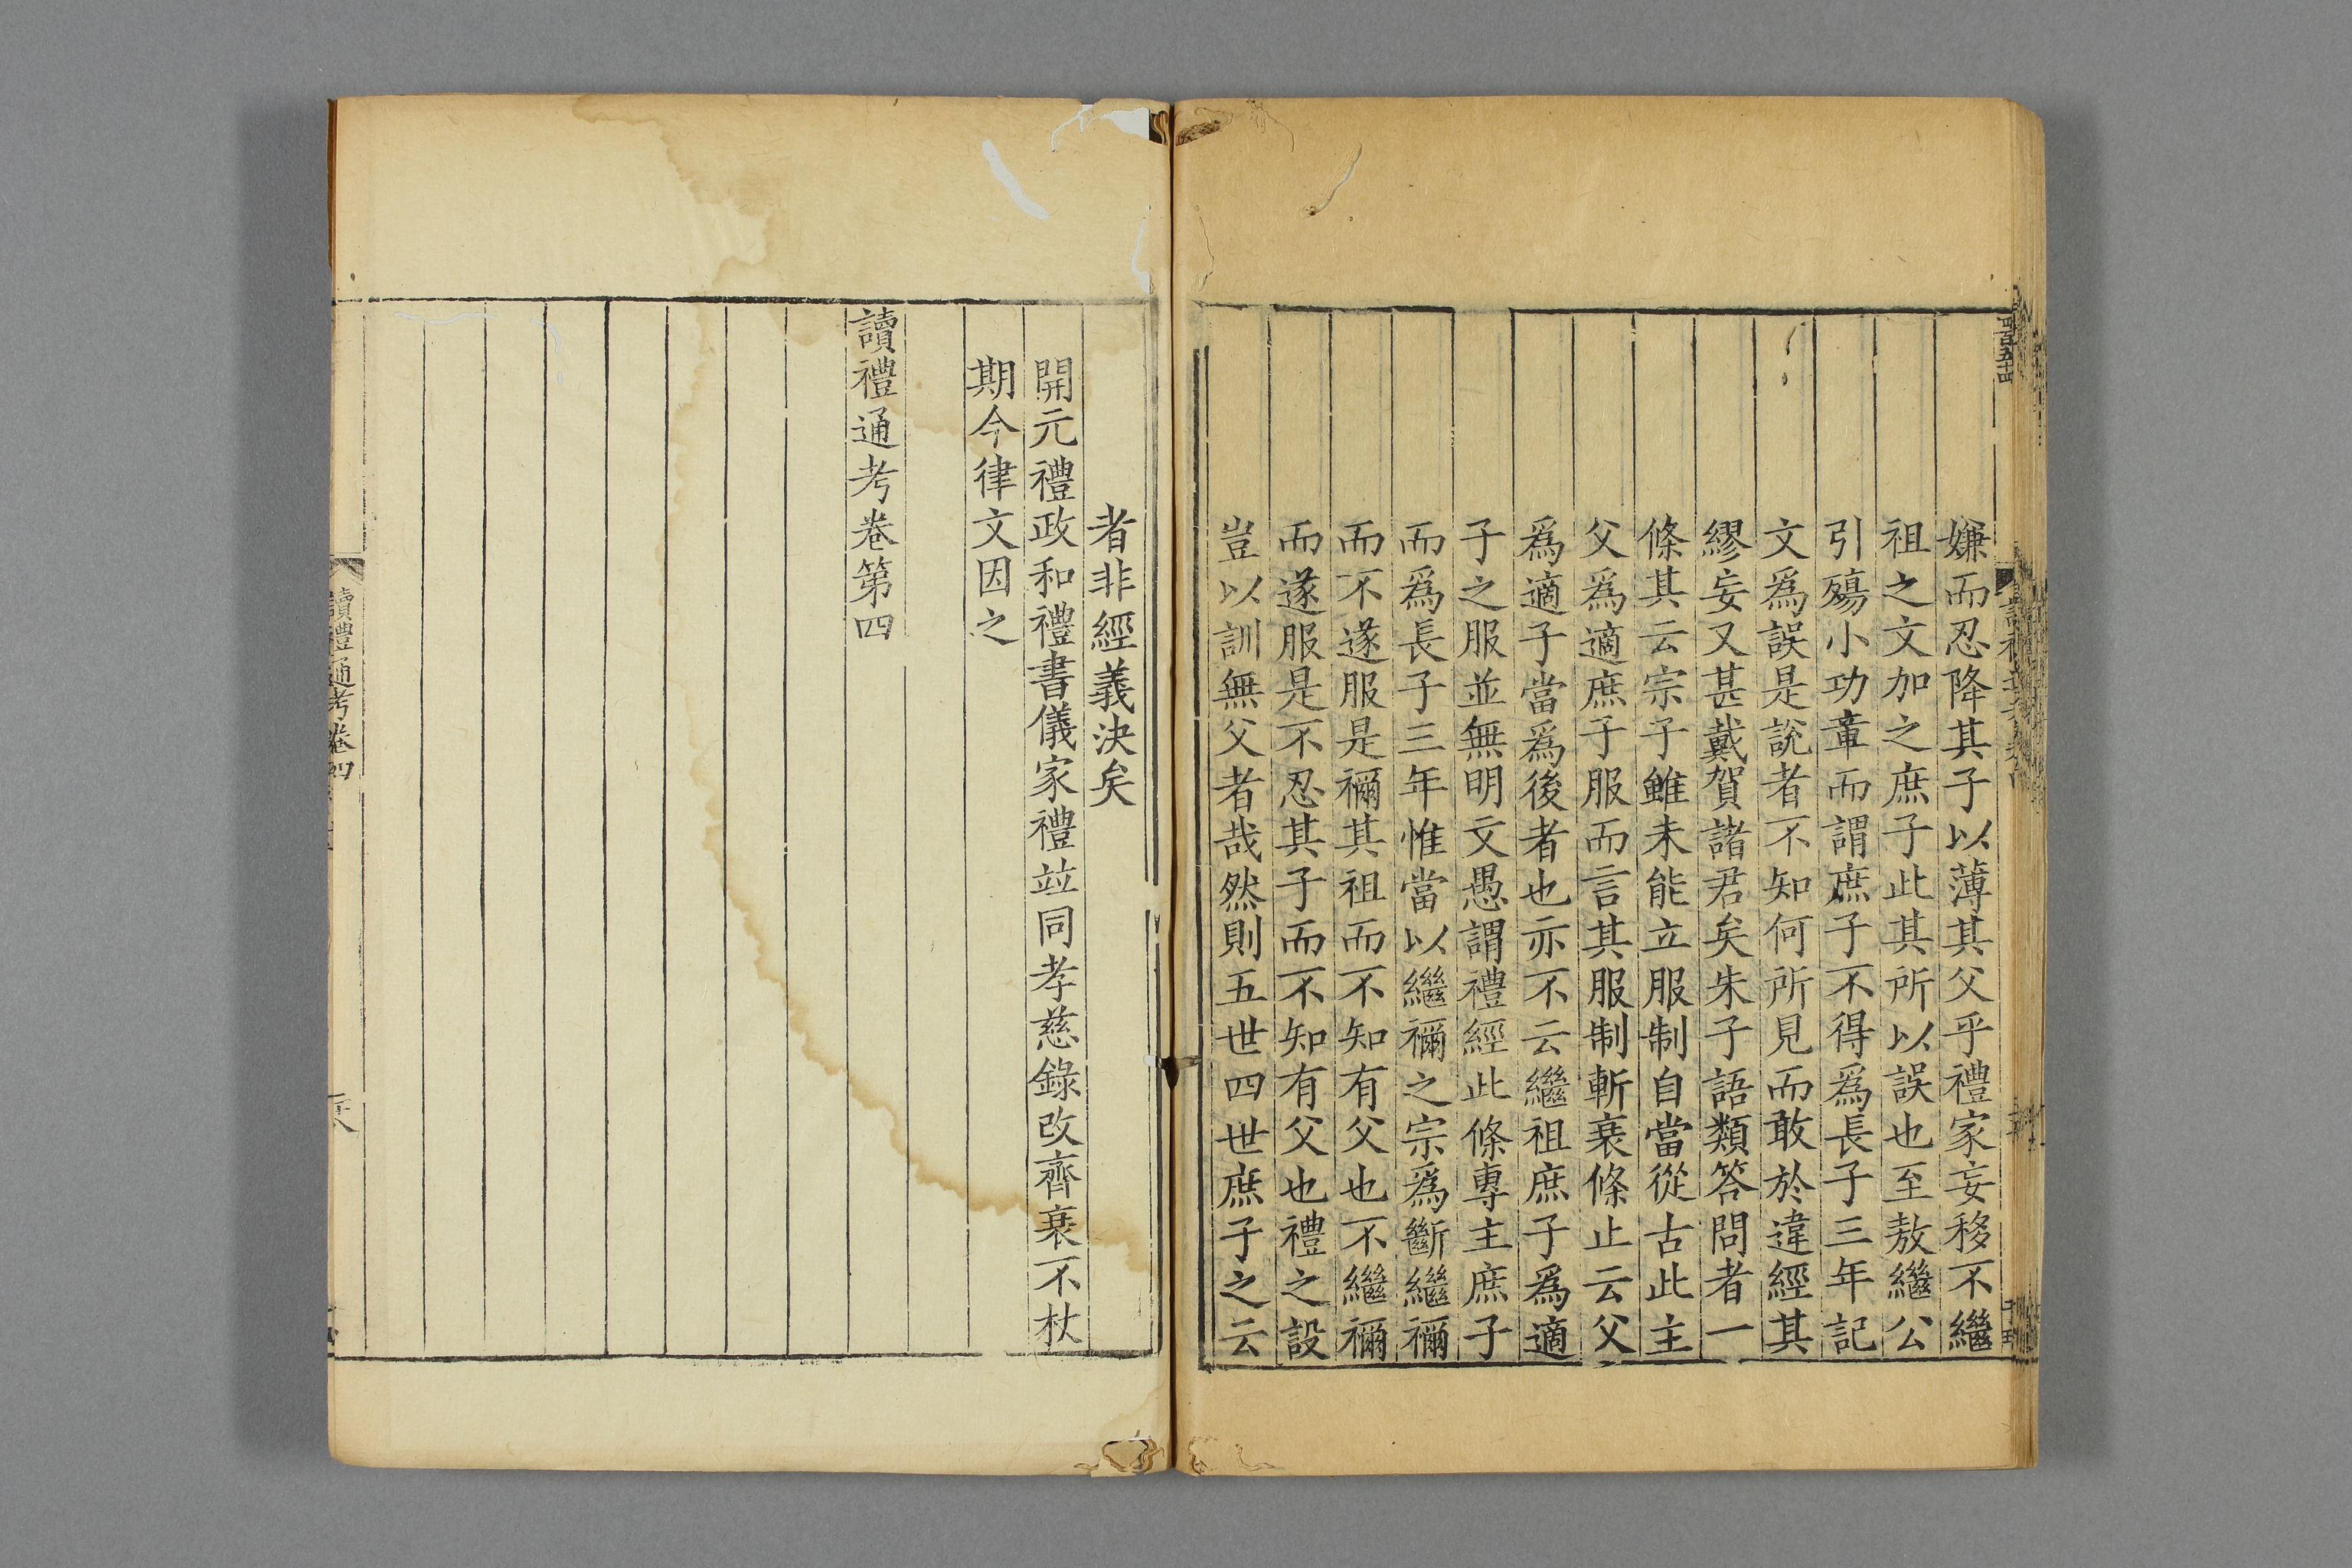 嫌而忍降其子以薄其父乎禮家妄移不繼
祖之文加之庶子此其所以誤也至敖繼公
引殤小功章而謂庶子不得爲長子三年記
文爲誤是說者不知何所見而敢於違經其
繆妄又甚戴賀諸君矣朱子語類答問者一
條其云宗子雖未能立服制自當從古此主
父爲適庶子服而言其服制斬衰條止云父
爲適子當爲後者也亦不云繼祖庶子爲適
子之服並無明文愚謂禮經此條專主庶子
而爲長子三年惟當以繼禰之宗爲斷繼禰
而不遂服是禰其祖而不知有父也不繼禰
而遂服是不忍其子而不知有父也禮之設
豈以訓無父者哉然則五世四世庶子之云
者非經義決矣
開元禮政和禮書儀家禮竝同孝慈錄改齊衰不杖
期今律文因之
讀禮通考卷第四
讀禮通考卷四